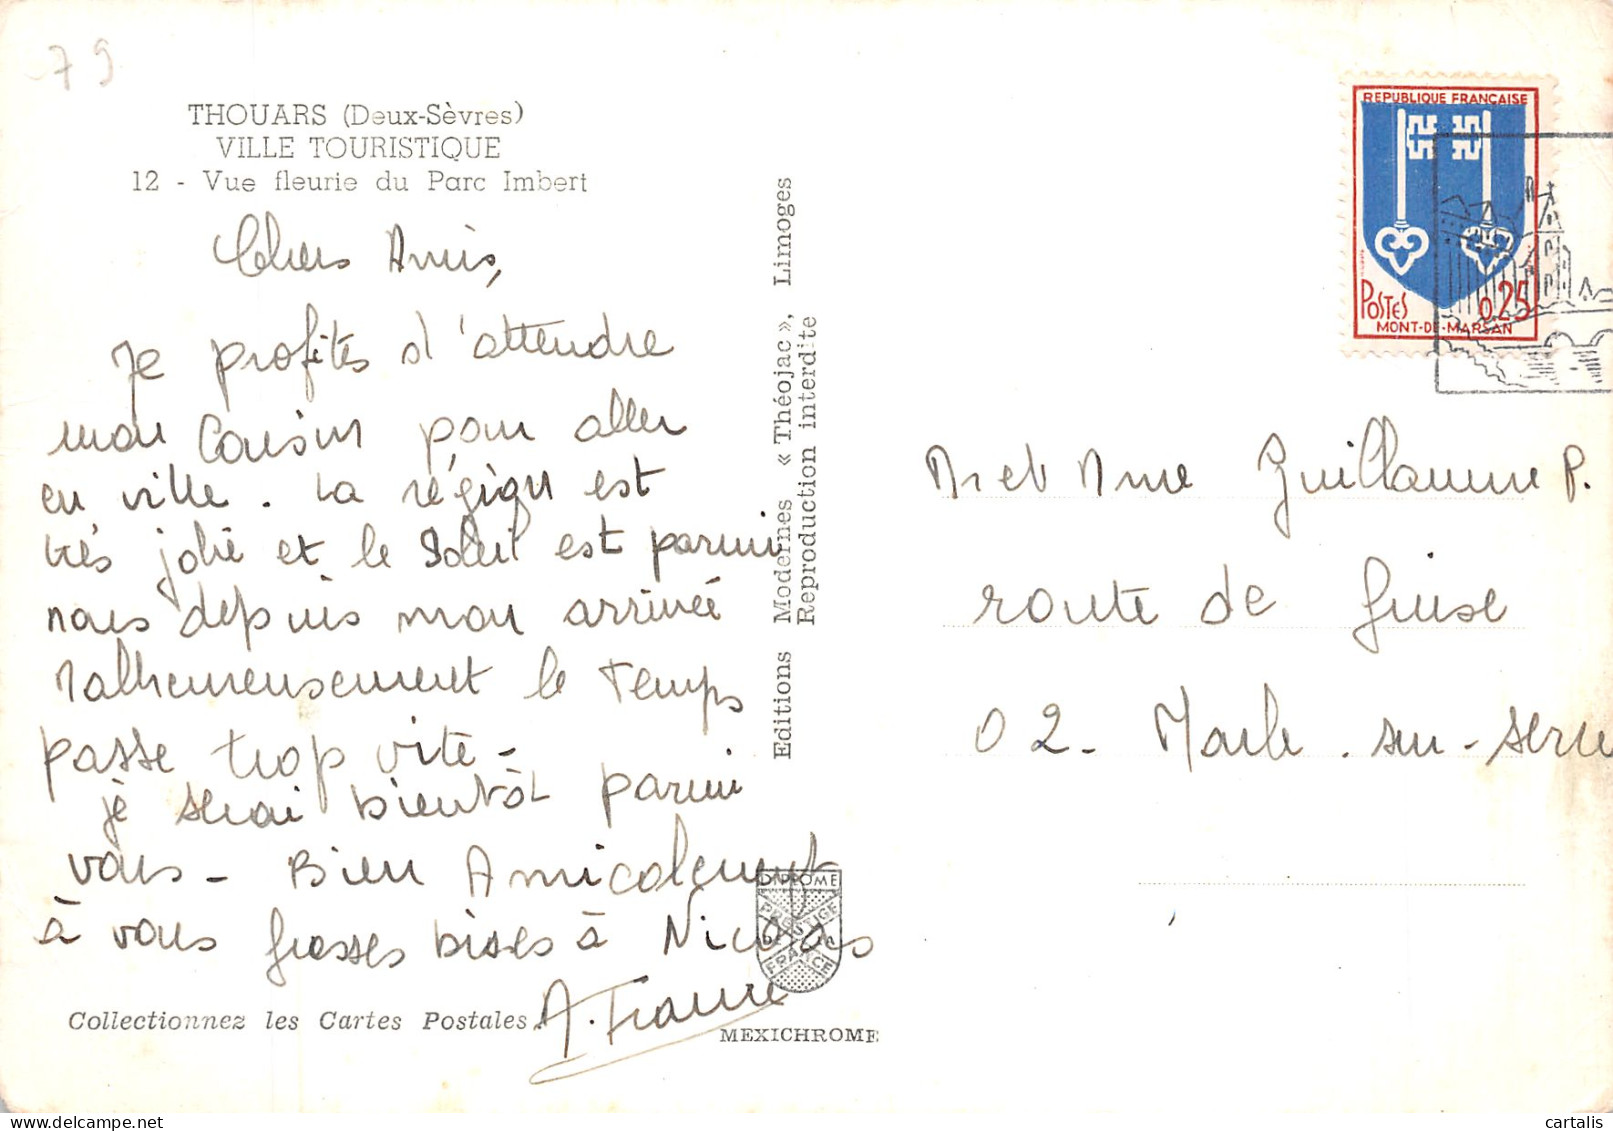 79
THOUARS (Deux-Sèvres)
VILLE TOURISTIQUE
12 - Vue fleurie du Parc Imbert
Chers Amis,
Je profites d'attendre
mon Cousin pour aller
en ville. La région est
très jolie et le Soleil est parmi
nous depuis mon arrivée
Malheureusement le temps
passe trop vite -
je serai bientôt parmi
vous - Bien Amicalement
à vous grosses bises à Nicolas
A. France
Collectionnez les Cartes Postales
Editions Modernes « Théojac », Limoges
Reproduction interdite
DIPLOME
PRESTIGE
DE LA
FRANCE
MEXICHROME
REPUBLIQUE FRANÇAISE
POSTES
0,25
MONT-DE-MARSAN
Mr et Mme Guillaume P.
route de Guise
02 - Marle - sur - serre
cartalis